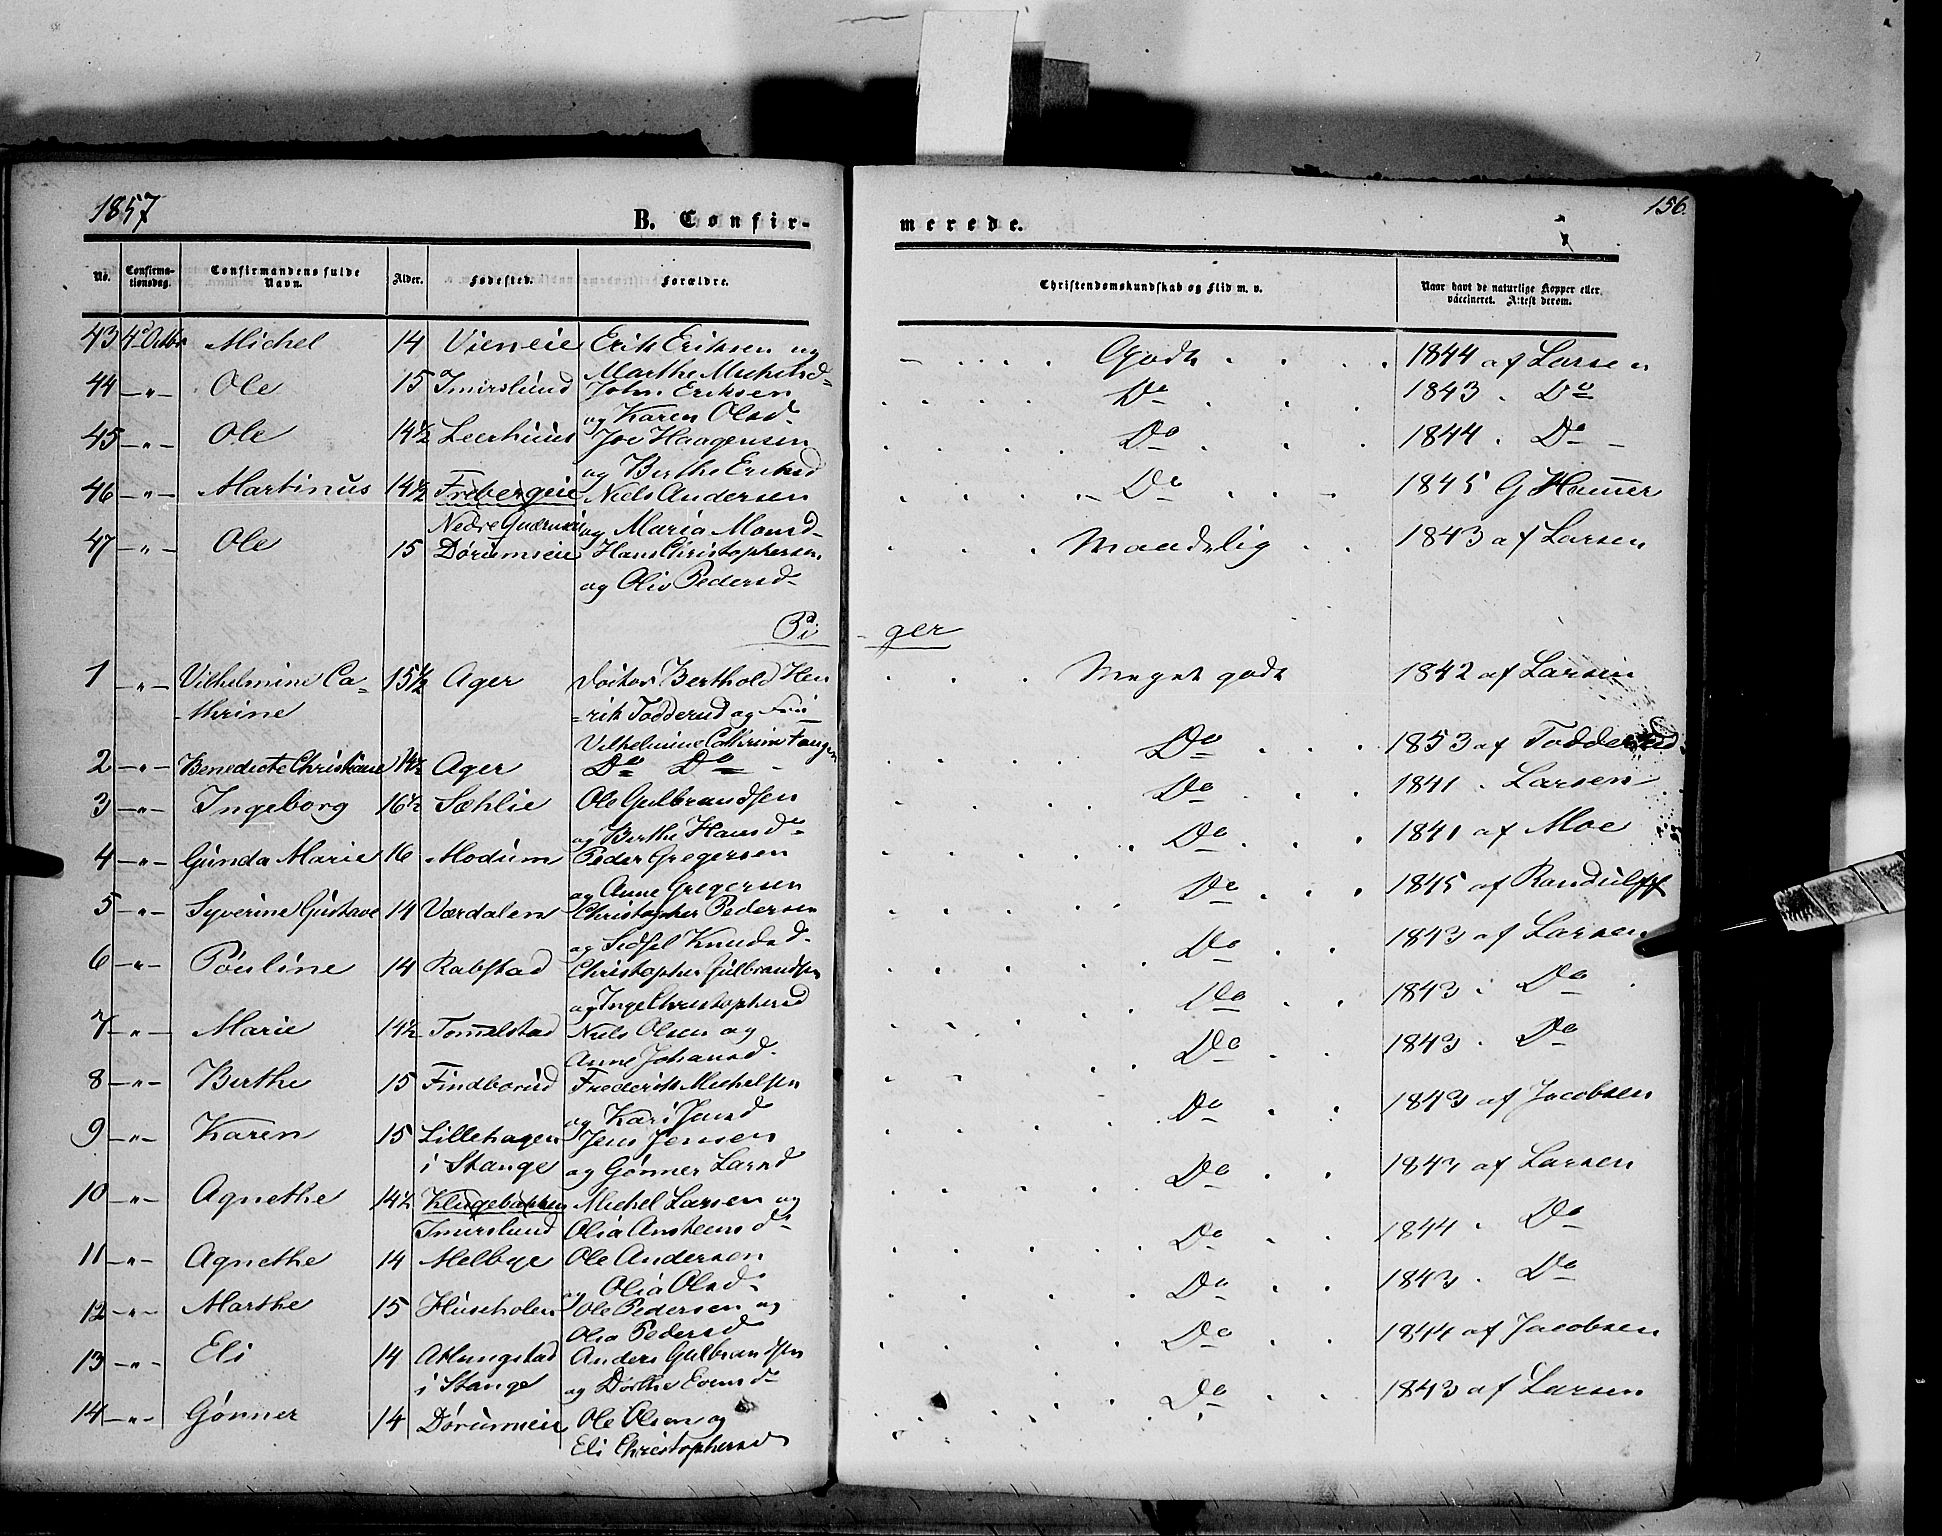 1857
B. Confir-
merede.
156.
No.
Confirma-
tionsdag.
Confirmandens fulde
Navn.
Alder.
Fødested.
Forældre.
Christendomskundskab og Flid m. v.
Naar havt de naturlige Kopper eller
vaccineret. Attest derom.
43 4d Octbr Michel 14 Vieneie Erik Eriksen og Godt 1844 af Larsen
Marthe Michelsd
44 -"- Ole 15 Imirslund John Eriksen Do 1843 . Do
og Karen Olsd
45 -"- Ole 14½ Leerhuus Joe Haagensen Do 1844 . Do
og Berthe Eriksd
46 -"- Martinus 14½ Frebergeie Niels Andersen Do 1845 G Hammer
Nedre og Maria Monsd
47 -"- Ole 15 Dørumseie Hans Christophersen Maadelig 1843 af Larsen
og Oliv Pedersd
Pi - ger
1 -"- Vilhelmine Ca- 15½ Ager Doctor Berthold Hen Meget godt 1842 af Larsen
-thrine =rik Todderud og Fru
Vilhelmine Cathrine Fangen
2 -"- Benedicte Christiane 14½ Ager Do Do Do 1853 af Todderud
3 -"- Ingeborg 16½ Sæhlie Ole Gulbrandsen Do 1841 . Larsen
og Berthe Hansd
4 -"- Gunda Marie 16 Modum Peder Gregersen Do 1841 af Moe
og Anne Gregersen
5 -"- Syverine Gustave 14 Værdalen Christopher Pedersen Do 1845 af Randulff
og Sidsel Knudsd
6 -"- Pouline 14 Rabstad Christopher Gulbrandsen Do 1843 af Larsen
og Inge Christophersd
7 -"- Marie 14½ Tommelstad Niels Olsen og Do 1843 . Do
Anne Johansd
8 -"- Berthe 15 Findborud Frederik Michelsen Do 1843 . Do
og Kari Jensd
9 -"- Karen 15 Lillehagen Jens Jensen Do 1843 af Jacobsen
i Stange og Gønner Larsd
10 -"- Agnethe 14½ Klugebakken Michel Larsen og Do 1843 af Larsen
Imirslund Olia Ansteensd
11 -"- Agnethe 14 Melbye Ole Andersen Do 1844 . Do
og Olia Olsd
12 -"- Marthe 15 Huseholen Ole Pedersen og Do 1843 . Do
Olia Pedersd
13 -"- Eli 14 Atlungstad Anders Gulbrandsen Do 1844 af Jacobsen
i Stange og Dorthe Evensd
14 -"- Gønner 14 Dørumseie Ole Olsen og Do 1843 af Larsen
Eli Christophersd